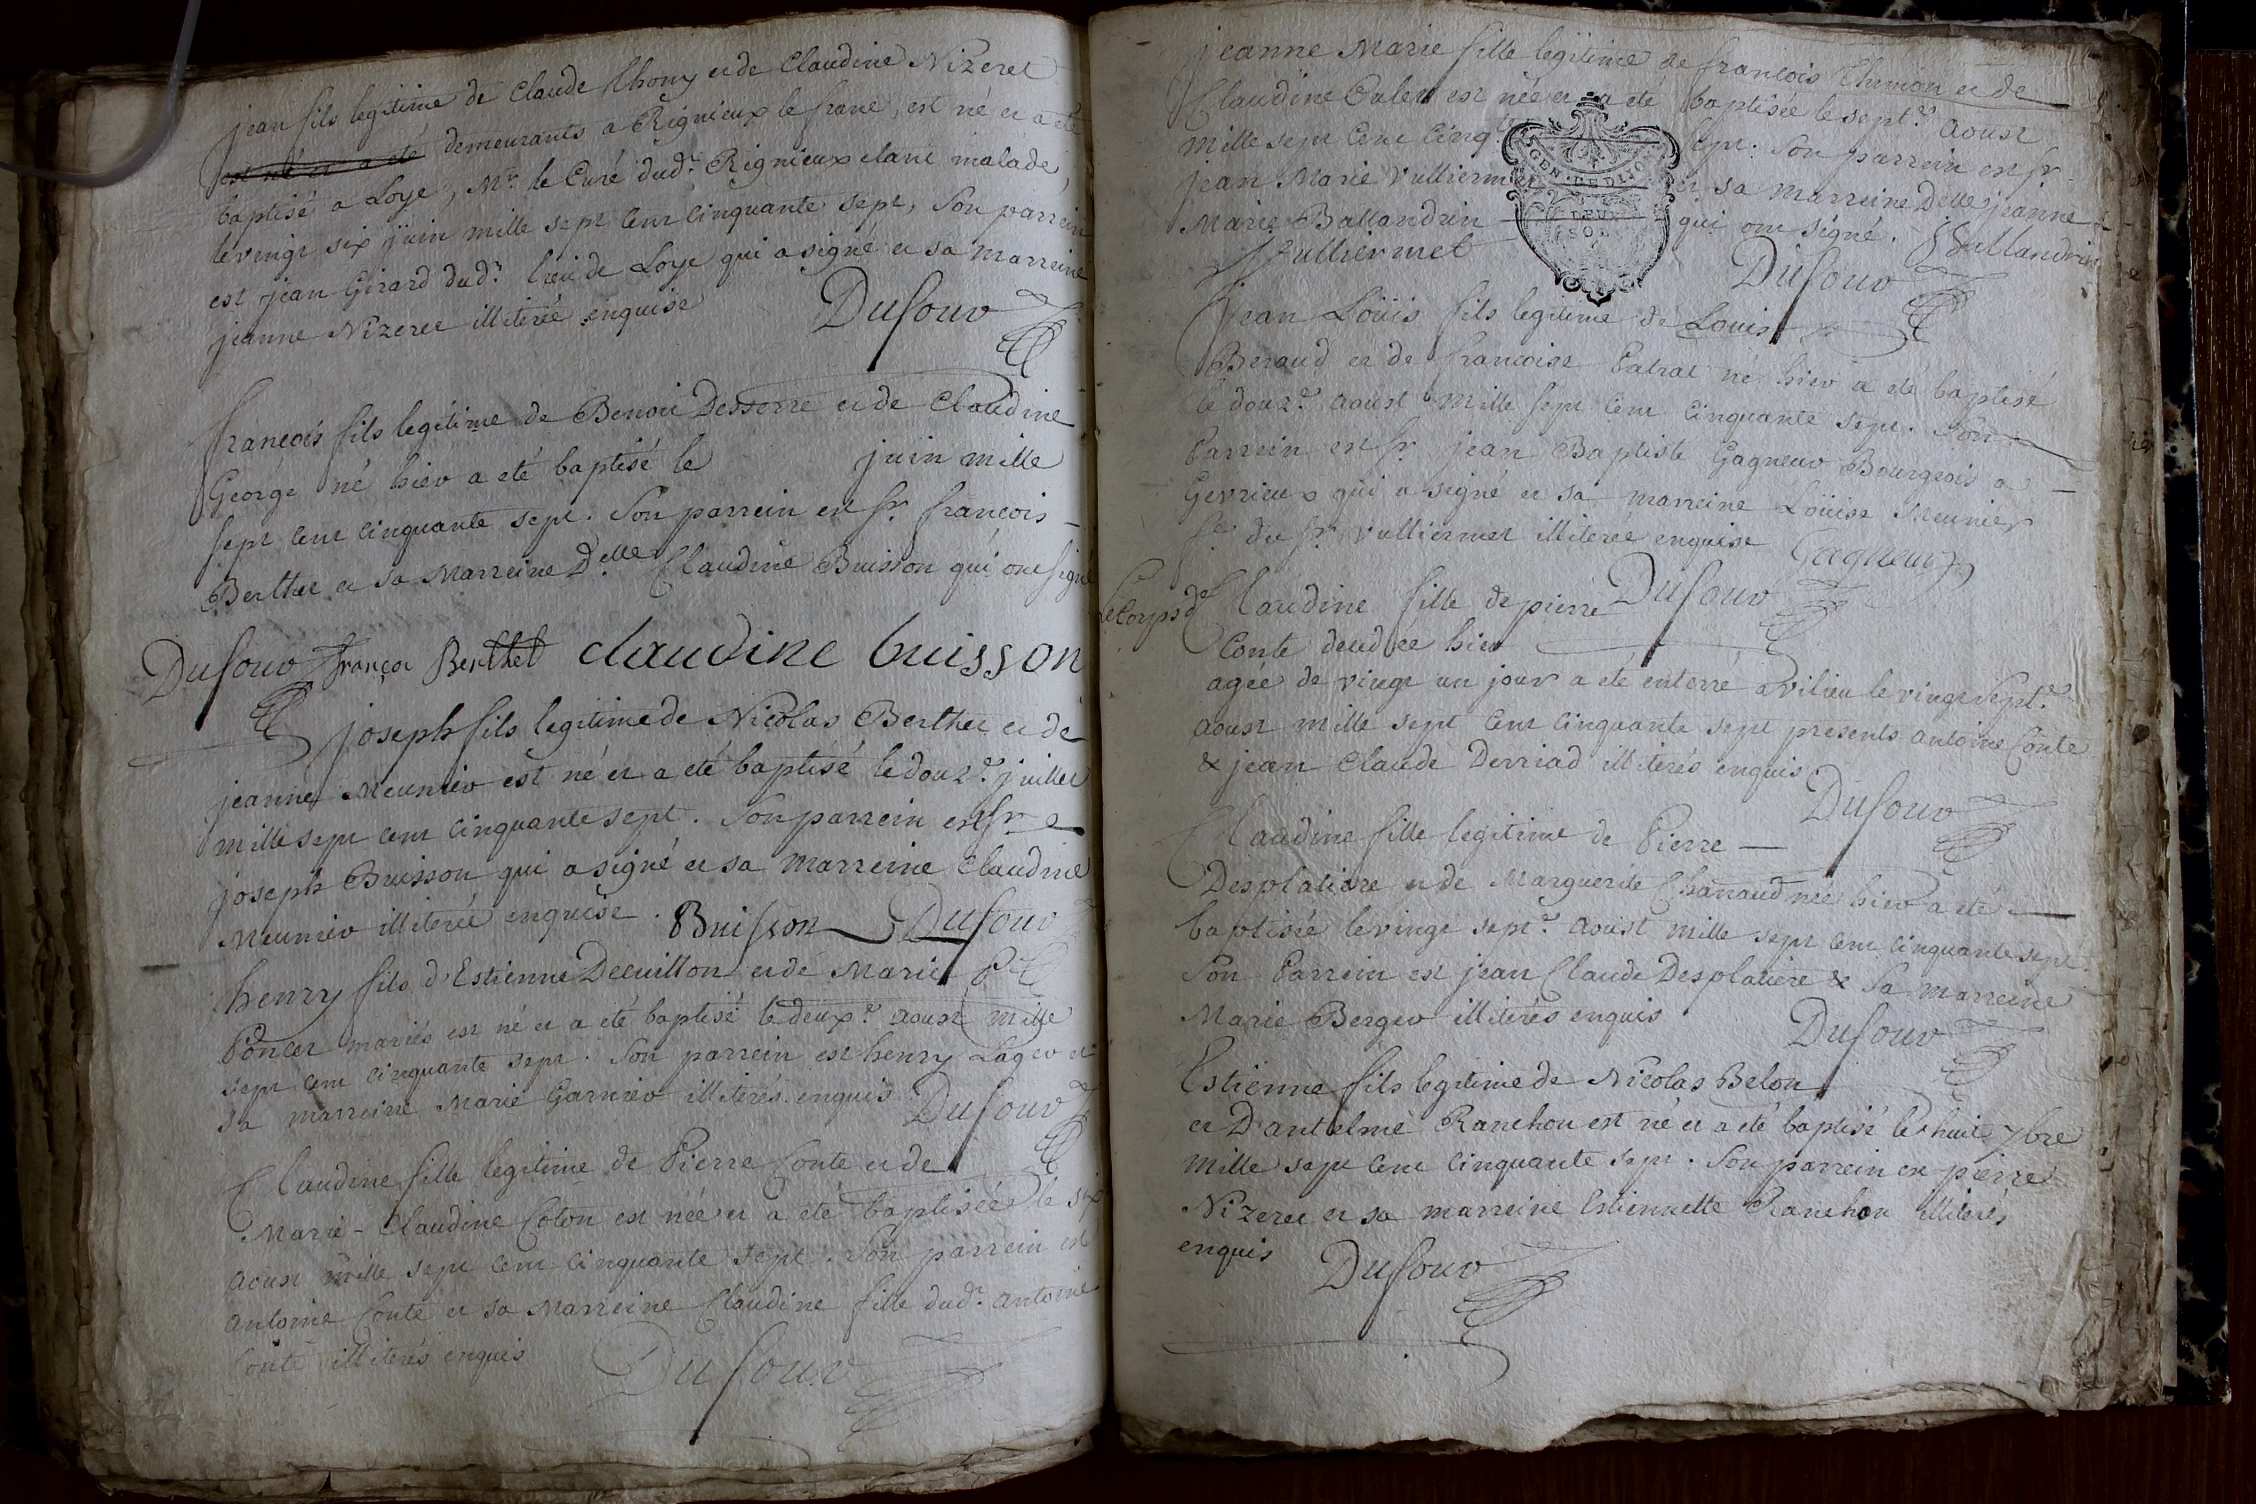 jean fils legitime de Claude Thony et de Claudine Nizeret
est né et a eté demeurants a Rignieux le franc, est né et a eté
baptisé a Loye, Mr. le Curé dudt. Rignieux etant malade,
le vingt six juin mille sept cent cinquante sept, Son parrein
est jean Girard dudt. lieu de Loye qui a signé et sa marreine
jeanne Nizeret illiterée enquise
Dufour
francois fils legitime de Benoit Desserre et de Claudine
George né hier a eté baptisé le juin mille
sept cent cinquante sept. Son parrein est sr. francois
Berthet et sa Marreine Delle Claudine Buisson qui ont signé
Dufour françoi Berthet claudine buisson
joseph fils legitime de Nicolas Berthet et de
jeanne Meunier est né et a eté baptisé le douze. juillet
mille sept cent cinquante sept. Son parrein est sr
joseph Buisson qui a signé et sa marreine Claudine
Meunier illiterée enquise. Buisson Dufour
henry fils d'Estienne Decuillon et de Marie
Poncet mariés est né et a eté baptisé le deuxe. aoust mille
sept cent cinquante sept. Son parrein est henry Lager et
sa marreine Marie Garnier illiterés enquis Dufour
Claudine fille legitime de Pierre Conte et de
Marie-Claudine Coton est née et a eté baptisée le six
aoust mille sept cent cinquante sept. Son parrein est
antoine Conte et sa Marreine Claudine fille dudt. antoine
Conte illiterés enquis
Dufour
jeanne Marie fille legitime de francois Themon et de
Claudine est née et a eté baptisée le septe. aoust
mille sept cent cinqte sept. Son parrein est sr.
GEN. DE LYON
jean Marie Vulliermet et sa marreine Delle jeanne
DEUX
Marie Ballandrin qui ont signé. JBallandrin
SOLS
Vulliermet Dufour
jean Loüis fils legitime de Louis
Beraud et de francoise Patrat né hier a eté baptisé
le douze. aoust mille sept cent cinquante sept. Son
Parrein est sr. jean Baptiste Gagneur Bourgeois a
Gevrieux qui a signé et sa marreine Loüise Meunier
fe. du sr. Vulliermet illiterée enquise Gagneur
Le Corps de Claudine fille de pierre Dufour
Conte decedée hier
agée de vingt un jour a eté enterré a vilieu le vingt septe.
aoust mille sept cent cinquante sept presents antoine Conte
& jean Claude Derriad illiterés enquis
Dufour
Claudine fille legitime de Pierre
Desplatiere et de Marguerite Chanaud née hier a eté
baptisée le vingt septe. aoust mille sept cent cinquante sept
Son Parrein est jean Claude Desplatiere & Sa marreine
Marie Berger illiterés enquis
Dufour
Estienne fils legitime de Nicolas Belon
et D'antelme Ranchon est né et a eté baptisé le huit 7bre
mille sept cent cinquante sept. Son parrein est pierre
Nizeret et sa marreine Estiennette Ranchon illiterés
enquis Dufour